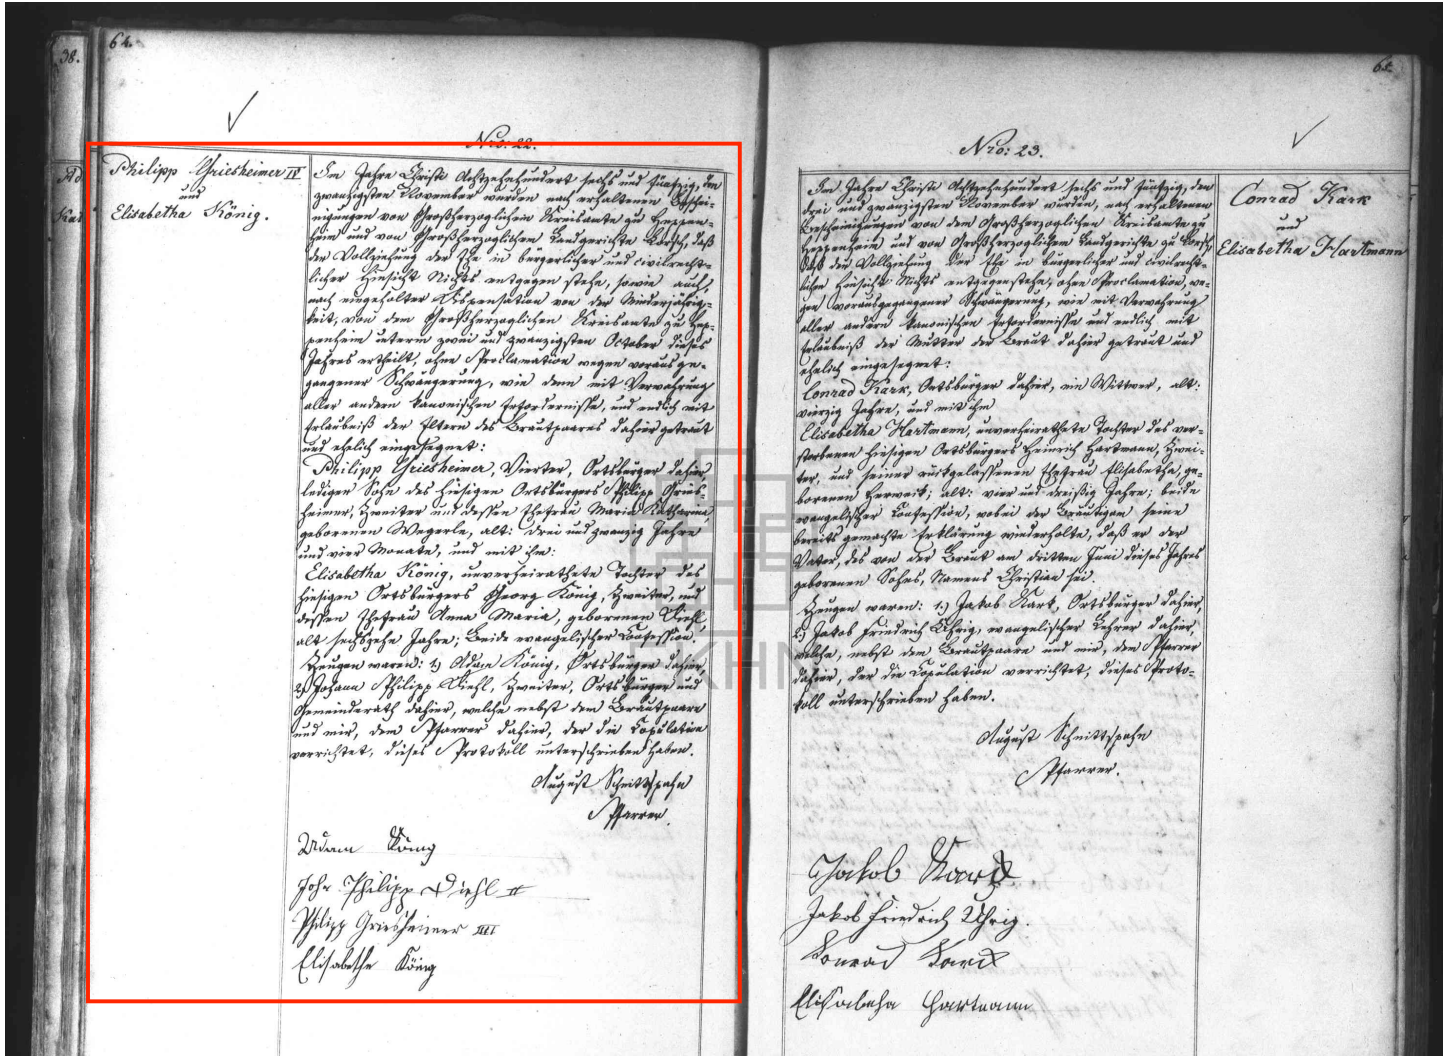 38.
64.
Nro: 22.
Philipp Griesheimer IV
und
Elisabetha König.
Im Jahre Christi Achtzehnhundert sechs und fünfzig, den
zwanzigsten November wurden nach erhaltenen Beschei-
nigungen von Großherzoglichem Kreisamte zu Heppen-
heim und von Großherzoglichem Landgerichte Lorsch, daß
der Vollziehung der Ehe in bürgerlicher und civilrecht-
licher Hinsicht Nichts entgegen stehe, sowie auch,
nach eingeholter Dispensation von der Minderjährig-
keit, von dem Großherzoglichen Kreisamte zu Hep-
penheim unterm zwei und zwanzigsten October dieses
Jahres ertheilt, ohne Proclamation wegen vorausge-
gangener Schwängerung, wie denn mit Verwahrung
aller andern kanonischen Erfordernisse, und endlich mit
Erlaubniß der Eltern des Brautpaares dahier getraut
und ehelich eingesegnet:
Philipp Griesheimer, Vierter, Ortsbürger dahier,
ledigen Sohn des hiesigen Ortsbürgers Philipp Gries-
heimer, Zweiter und dessen Ehefrau Maria Katharina,
geborenen Wegerle, alt: drei und zwanzig Jahre
und vier Monate, und mit ihm:
Elisabetha König, unverheirathete Tochter des
hiesigen Ortsbürgers Georg König, Zweiter, und
dessen Ehefrau Anna Maria, geborenen Diehl,
alt sechszehn Jahre; beide evangelischer Confession.
Zeugen waren: 1.) Adam König, Ortsbürger dahier,
2.) Johann Philipp Diehl, Zweiter, Ortsbürger und
Gemeinderath dahier, welche nebst dem Brautpaare
und mir, dem Pfarrer dahier, der die Copulation
verrichtet, dieses Protokoll unterschrieben haben.
August Schnittspahn
Pfarrer.
Adam König
Joh. Philipp Diehl II
Philipp Griesheimer IIII
Elisabetha König
65.
Nro: 23.
Conrad Kark
und
Elisabetha Hartmann
Im Jahre Christi Achtzehnhundert sechs und fünfzig, den
drei und zwanzigsten November wurden, nach erhaltenen
Bescheinigungen von dem Großherzoglichen Kreisamte zu
Heppenheim und von Großherzoglichem Landgerichte zu Lorsch,
daß der Vollziehung der Ehe in bürgerlicher und civilrecht-
licher Hinsicht Nichts entgegenstehe, ohne Proclamation, we-
gen vorausgegangener Schwängerung, wie mit Verwahrung
aller andern kanonischen Erfordernisse und endlich mit
Erlaubniß der Mutter der Braut dahier getraut und
ehelich eingesegnet:
Conrad Kark, Ortsbürger dahier, ein Wittwer, alt:
vierzig Jahre, und mit ihm
Elisabetha Hartmann, unverheirathete Tochter des ver-
storbenen hiesigen Ortsbürgers Heinrich Hartmann, Zwei-
ter, und seiner rückgelassenen Ehefrau Elisabetha, ge-
borenen Herweit; alt: vier und dreißig Jahre; beide
evangelischer Confession, wobei der Bräutigam seine
bereits gemachte Erklärung wiederholte, daß er der
Vater, des von der Braut am dritten Juni dieses Jahres
geborenen Sohns, Namens Christian sei.
Zeugen waren: 1.) Jakob Kark, Ortsbürger dahier,
2.) Jakob Friedrich Uhrig, evangelischer Lehrer dahier,
welche, nebst dem Brautpaare und mir, dem Pfarrer
dahier, der die Copulation verrichtet, dieses Proto-
koll unterschrieben haben.
August Schnittspahn
Pfarrer.
Jakob Kark
Jakob Friedrich Uhrig.
Konrad Kark
Elisabeha Hartmann
EKHN